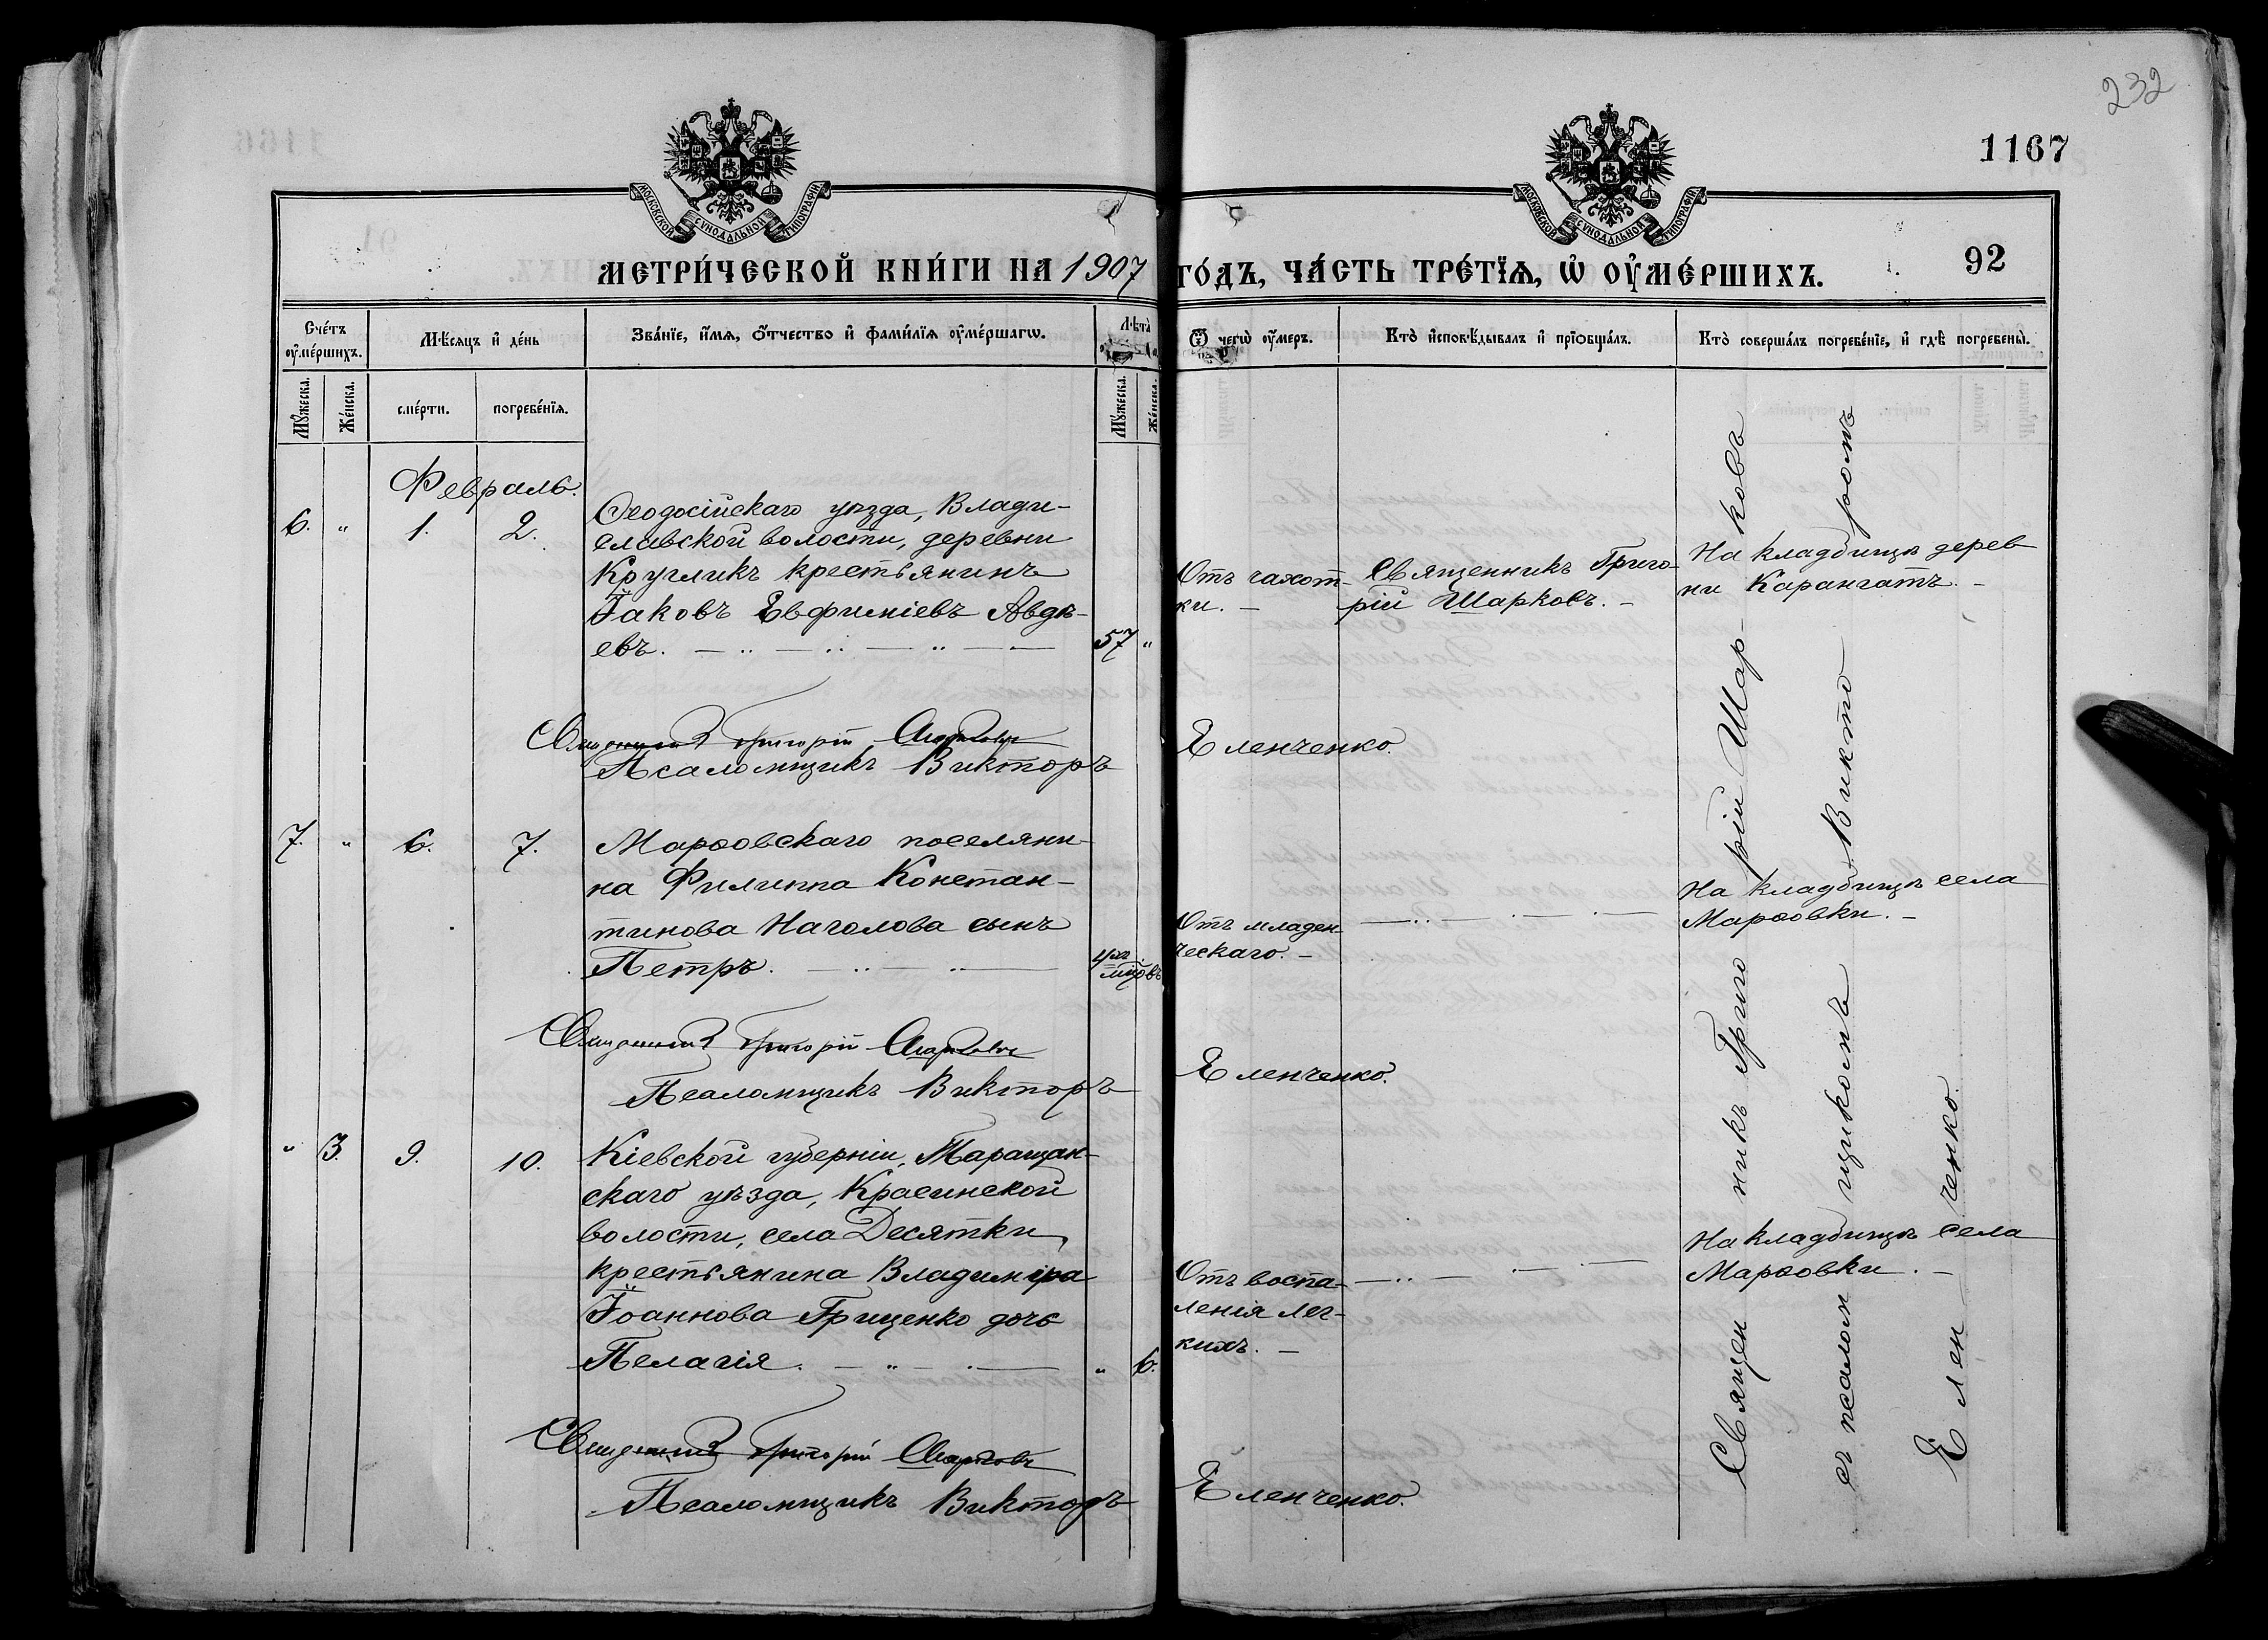 232
1167
МОСКОВСКОЙ СѴНОДАЛЬНОЙ ТИПОГРАФІИ
МОСКОВСКОЙ СѴНОДАЛЬНОЙ ТИПОГРАФІИ
МЕТРИ́ЧЕСКОЙ КНИ́ГИ НА 1907 ГО́ДЪ, ЧА́СТЬ ТРЕ́ТЇѦ, Ѡ҆ ОУ҆МЕ́РШИХЪ.
92
Сче́тъ оу҆ме́ршихъ.
Мѣ́сяцъ и҆ де́нь
Зва́нїе, и҆́мя, ѻ҆́тчество и҆ фами́лїя оу҆ме́ршагѡ.
Лѣта̀
Ѿ чегѡ̀ оу҆́меръ.
Кто̀ и҆сповѣ́дывалъ и҆ прїѻбща́лъ.
Кто̀ соверша́лъ погребе́нїе, и҆ гдѣ̀ погребены̀.
Мꙋ́жеска.
Же́нска.
сме́рти.
погребе́нїя.
Мꙋ́жеска.
Же́нска.
Февраль.
6. " 1. 2.
Ѳеодосійскаго уѣзда, Влади-
славской волости, деревни
Кругликъ крестьянинъ
Іаковъ Евфиміевъ Авдѣ-
евъ. 57 "
Отъ чахот-
ки. -
Священникъ Григо-
рій Шарковъ. -
На кладбищѣ дерев
ни Карангатъ. -
Священникъ Григорій Шарковъ
Псаломщикъ Викторъ Еленченко.
7. " 6. 7.
Марѳовскаго поселяни-
на Филиппа Констан-
тинова Наголова сынъ
Петръ.
Отъ младен-
ческаго. -
На кладбищѣ села
Марѳовки. -
Священникъ Григорій Шарковъ
Псаломщикъ Викторъ Еленченко.
" 3. 9. 10.
Кіевской губерніи, Таращан-
скаго уѣзда, Красинской
волости, села Десятки,
крестьянина Владиміра
Іоаннова Грищенко дочь
Пелагія. " 6.
Отъ воспа-
ленія лег-
кихъ. -
На кладбищѣ села
Марѳовки. -
Священникъ Григорій Шарковъ
Псаломщикъ Викторъ Еленченко.
Священ никъ Григо рій Шар- ковъ
съ псалом щикомъ Викто ромъ
Елен ченко.